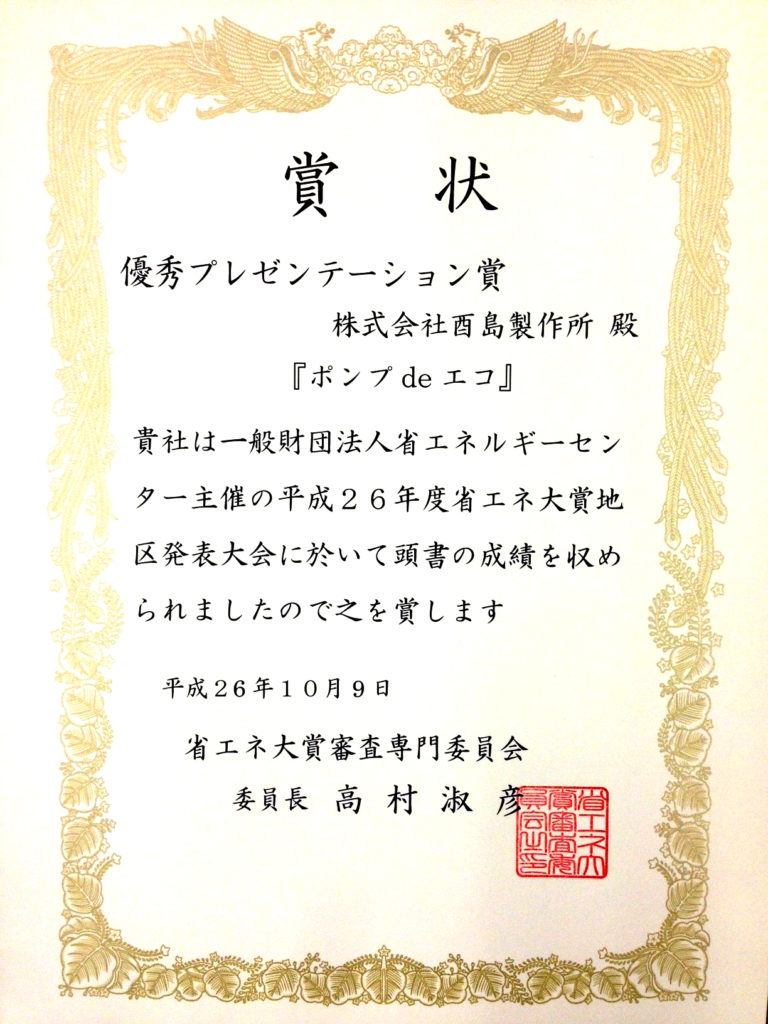 賞状
優秀プレゼンテーション賞
株式会社酉島製作所 殿
『ポンプ de エコ』
貴社は一般財団法人省エネルギーセン
ター主催の平成２６年度省エネ大賞地
区発表大会に於いて頭書の成績を収め
られましたので之を賞します
平成２６年１０月９日
省エネ大賞審査専門委員会
委員長 高村淑彦
省エネ大
賞審査委
員会之印